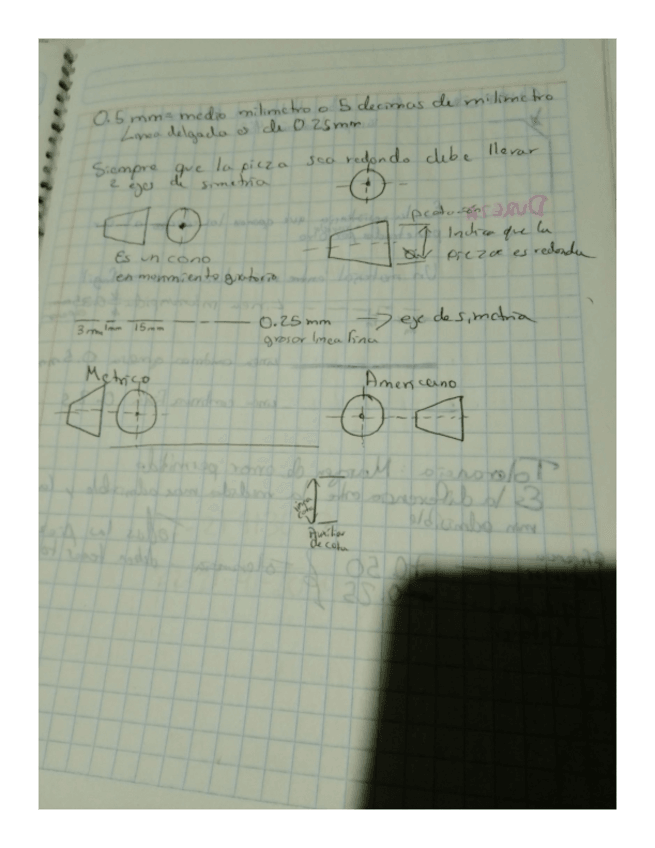 0.5 mm= medio milimetro o 5 decimas de milimetro
Linea delgada es de 0.25mm
Siempre que la pieza sea redonda debe llevar
2 ejes de simetria
Indica que la
pieza es redonda
Es un cono
en movimiento giratorio
3mm 1mm 15mm
0.25 mm → eje de simetria
grosor linea fina
Metrico
Americano
Auxiliar
de cota